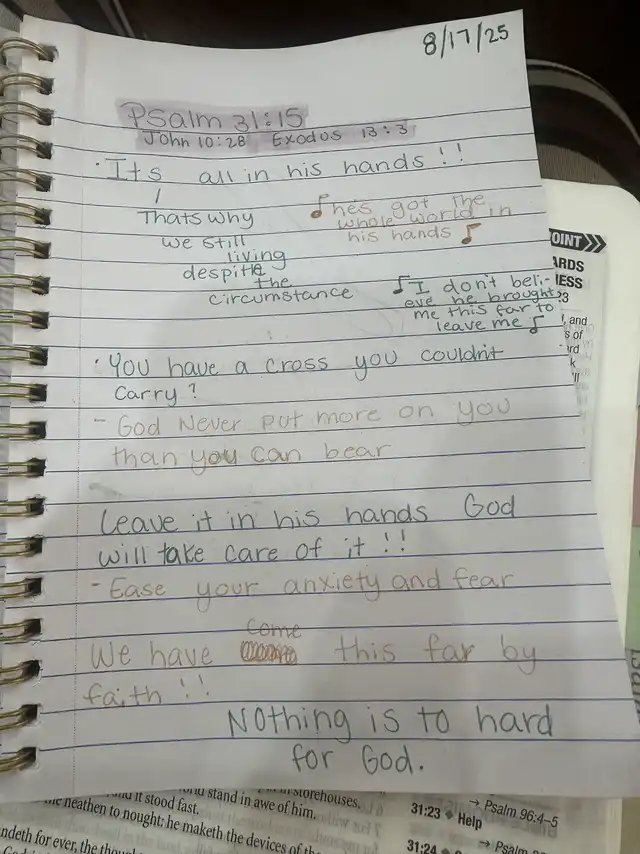 8/17/25
Psalm 31:15
John 10:28 Exodus 13:3
· Its all in his hands !!
Thats why
we still
living
despite
the
circumstance
♪ he's got the
whole world in
his hands ♪
♪ I don't beli-
eve he brought
me this far to
leave me ♪
· You have a cross you couldn't
carry?
- God Never put more on you
than you can bear
Leave it in his hands God
will take care of it !!
- Ease your anxiety and fear
come
We have this far by
faith !!
Nothing is to hard
for God.
OINT
ARDS
, and
s of
and it stood fast.
stand in awe of him.
storehouses.
heathen to nought: he maketh the devices of
ndeth for ever, the
→ Psalm 96:4–5
31:23 ◆ Help
→ Psalm
31:24